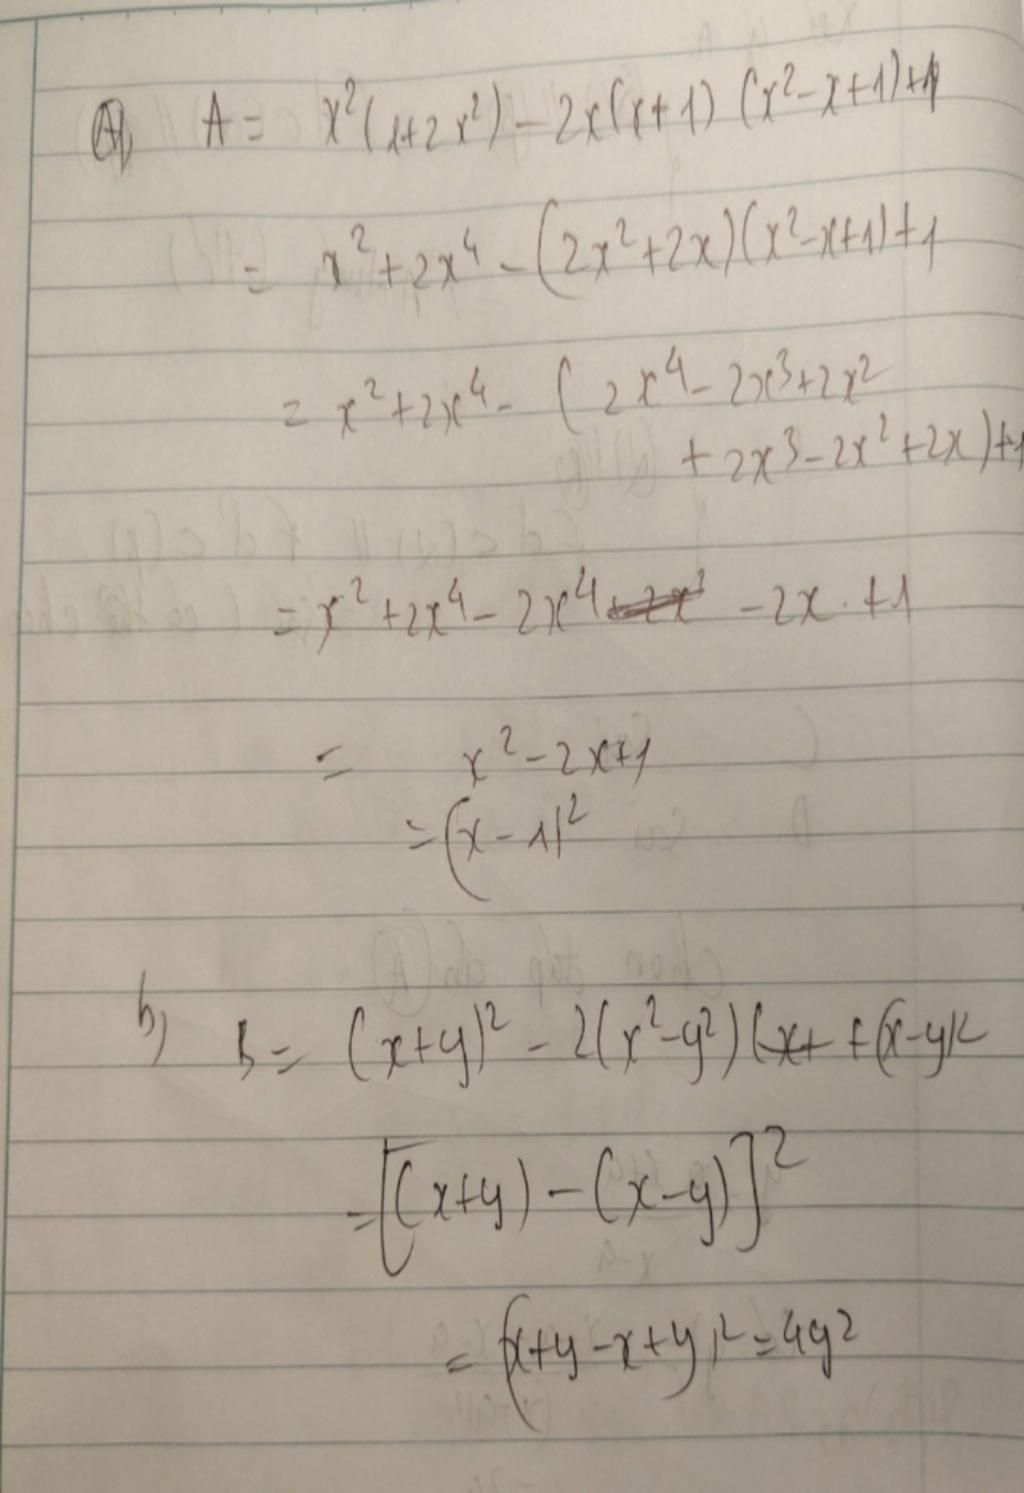 a) A = x²(1+2x²) - 2x(x+1)(x²-x+1)+1
= x²+2x⁴ - (2x²+2x)(x²-x+1)+1
= x²+2x⁴ - (2x⁴-2x³+2x²
+2x³-2x²+2x)+1
= x²+2x⁴-2x⁴ -2x+1
= x²-2x+1
= (x-1)²
b) B = (x+y)² - 2(x²-y²) + (x-y)²
= [(x+y) - (x-y)]²
= (x+y-x+y)² = 4y²